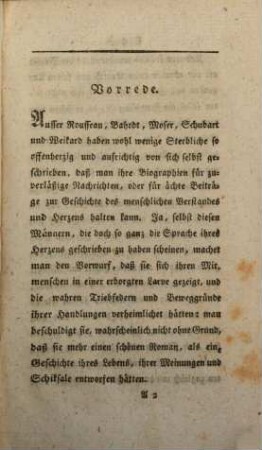 Vorrede.
Ausser Rousseau, Bahrdt, Moser, Schubart
und Weikard haben wohl wenige Sterbliche so
offenherzig und aufrichtig von sich selbst ge-
schrieben, daß man ihre Biographien für zu-
verläßige Nachrichten, oder für ächte Beiträ-
ge zur Geschichte des menschlichen Verstandes
und Herzens halten kann. Ja, selbst diesen
Männern, die doch so ganz die Sprache ihres
Herzens geschrieben zu haben scheinen, machet
man den Vorwurf, daß sie sich ihren Mit-
menschen in einer erborgten Larve gezeigt, und
die wahren Triebfedern und Beweggründe
ihrer Handlungen verheimlichet hätten: man
beschuldigt sie, wahrscheinlich nicht ohne Grund,
daß sie mehr einen schönen Roman, als eine
Geschichte ihres Lebens, ihrer Meinungen und
Schiksale entworfen hätten.
A 2